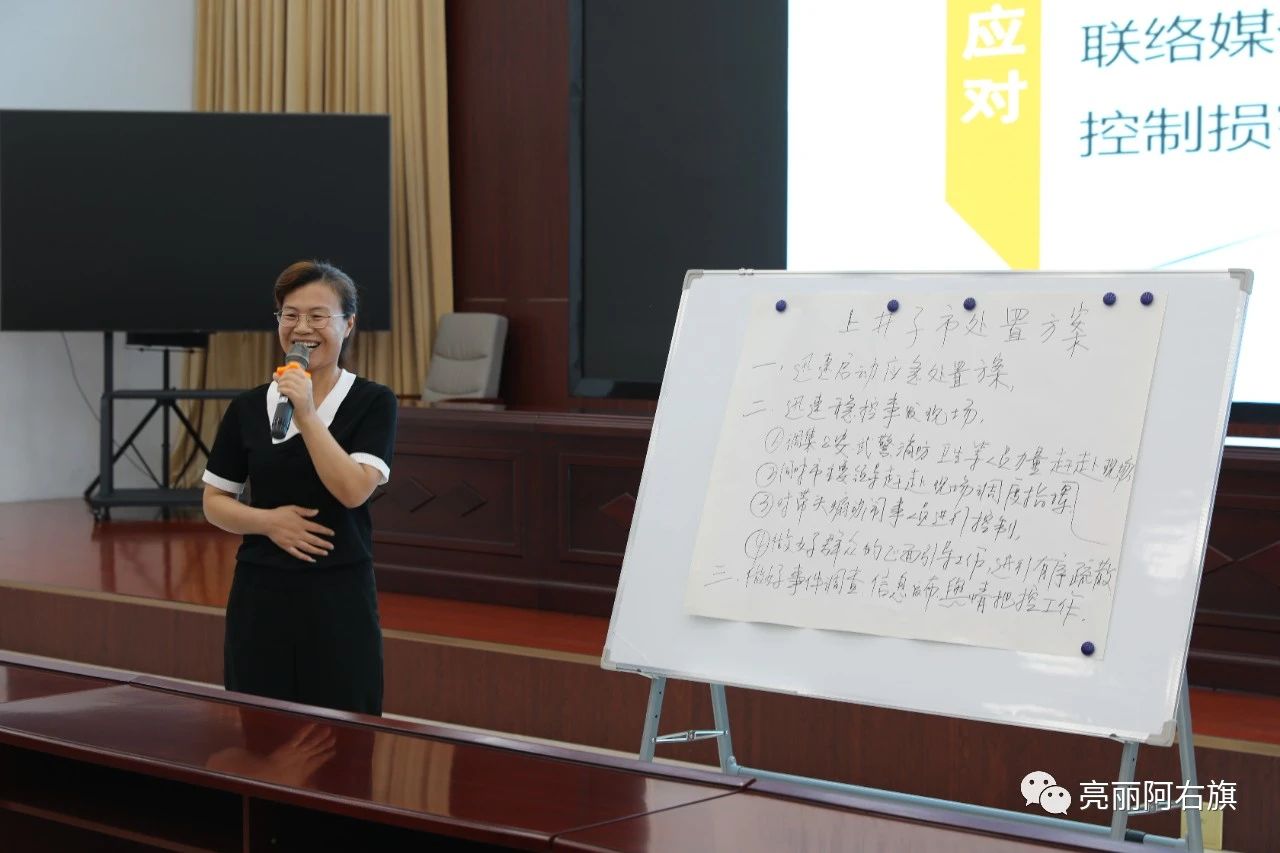 应对
联络媒
控制损
上井子市处置方案
一.迅速启动应急处置方案.
二.迅速稳控事发现场.
①调集公安武警消防卫生等人员力量赶赴现场
②同时市主要领导赶赴现场调度指挥
③对带头煽动闹事人员进行控制.
④做好群众的正面引导工作,进行有序疏散
三.做好事件调查信息发布舆情把控工作.
亮丽阿右旗